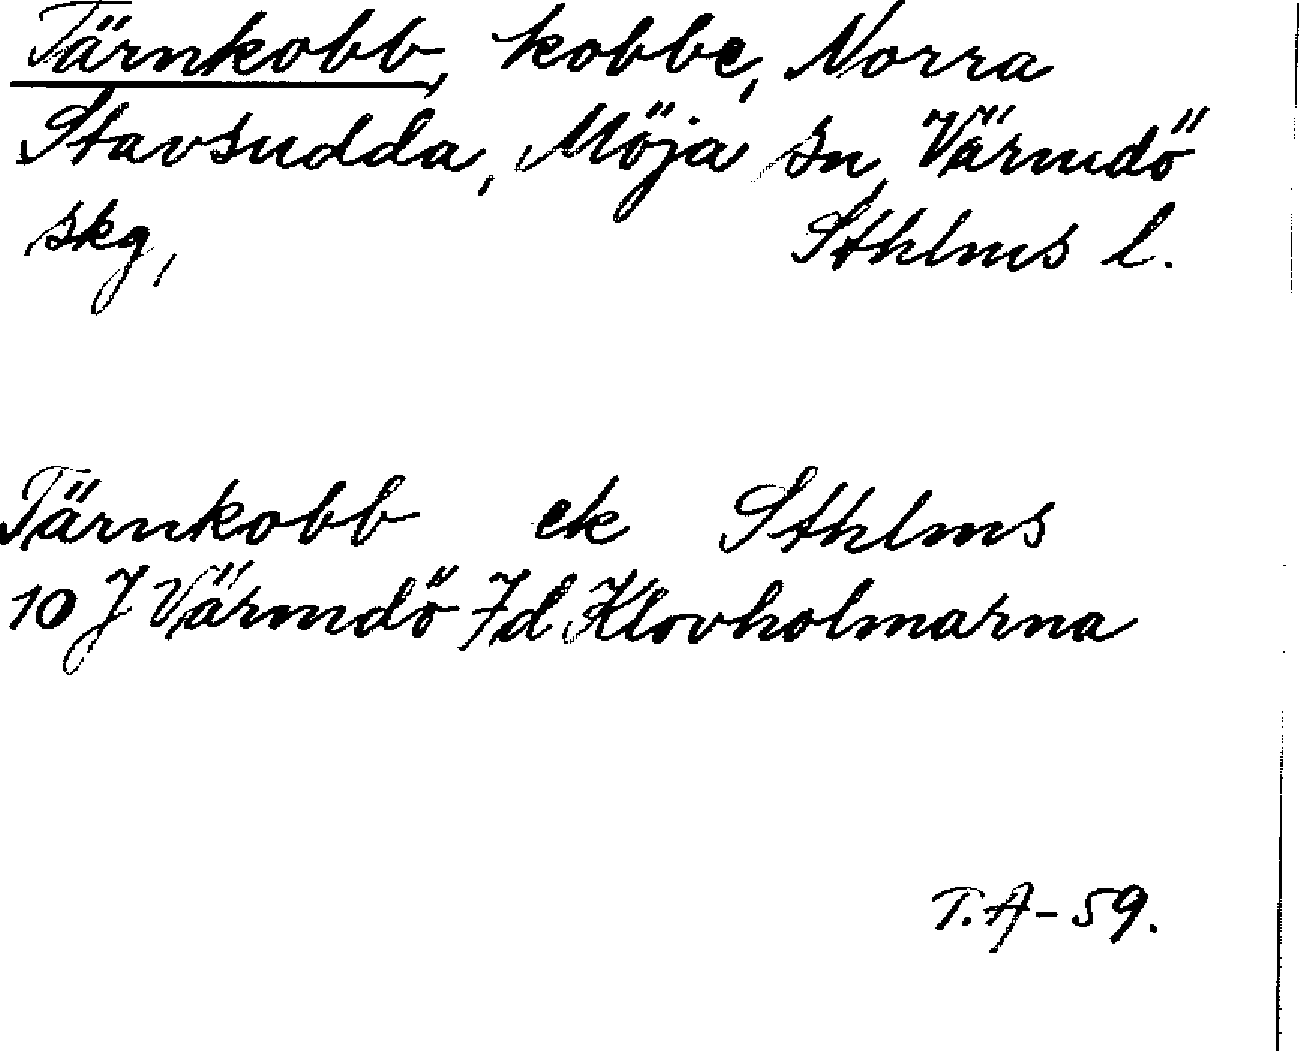 Tärnkobb, kobbe, Norra
Stavsudda, Möja sn, Värmdö
skg, Sthlms l.
Tärnkobb ek Sthlms
10 J Värmdö 7d Klovholmarna
T.A-59.